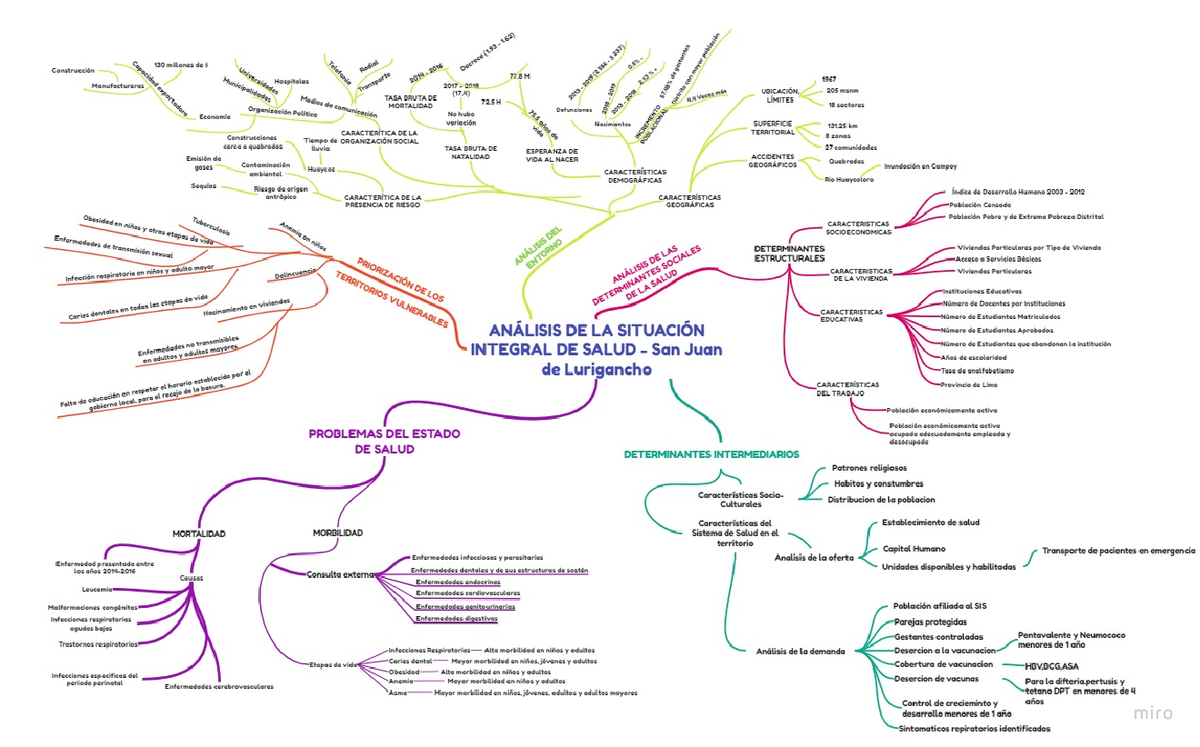 ANÁLISIS DE LA SITUACIÓN
INTEGRAL DE SALUD - San Juan
de Lurigancho
ANÁLISIS DEL
ENTORNO
Construcción
Manufactureras
Capacidad exportadora
130 millones de $
Economía
Universidades
Municipalidades
Hospitales
Organización Política
Telefonía
Radial
Transporte
Medios de comunicación
CARACTERÍTICA DE LA
ORGANIZACIÓN SOCIAL
Construcciones
cerca a quebradas
Tiempo de
lluvia
Emisión de
gases
Contaminación
ambiental
Huaycos
Soquias
Riesgo de origen
antrópico
CARACTERÍTICA DE LA
PRESENCIA DE RIESGO
2014 - 2016
Decrece (1.93 - 1.62)
TASA BRUTA DE
MORTALIDAD
2017 - 2018
(17.4)
No hubo
variación
TASA BRUTA DE
NATALIDAD
77.8 M
72.5 H
75.5 años de
vida
ESPERANZA DE
VIDA AL NACER
Defunciones
Nacimientos
INCREMENTO
POBLACIONAL
57.98% de gestantes
Distrito con mayor población
18.9 Veces más
CARACTERÍSTICAS
DEMOGRÁFICAS
CARACTERÍSTICAS
GEOGRÁFICAS
UBICACIÓN,
LÍMITES
1967
205 msnm
18 sectores
SUPERFICIE
TERRITORIAL
131.25 km
8 zonas
27 comunidades
ACCIDENTES
GEOGRÁFICOS
Quebradas
Río Huaycoloro
Inundación en Campoy
PRIORIZACIÓN DE LOS
TERRITORIOS VULNERABLES
Anemia en niños
Tuberculosis
Obesidad en niños y otras etapas de vida
Enfermedades de transmisión sexual
Infección respiratoria en niños y adulto mayor
Delincuencia
Caries dentales en todas las etapas de vida
Hacinamiento en viviendas
Enfermedades no transmisibles
en adultos y adultos mayores
Falta de educación en respetar el horario establecido por el
gobierno local, para el recojo de la basura.
ANÁLISIS DE LAS
DETERMINANTES SOCIALES
DE LA SALUD
DETERMINANTES
ESTRUCTURALES
CARACTERISTICAS
SOCIOECONOMICAS
Índice de Desarrollo Humano 2003 - 2012
Población Censada
Población Pobre y de Extrema Pobreza Distrital
CARACTERISTICAS
DE LA VIVIENDA
Viviendas Particulares por Tipo de Vivienda
Acceso a Servicios Básicos
Viviendas Particulares
CARACTERISTICAS
EDUCATIVAS
Instituciones Educativas
Número de Docentes por Instituciones
Número de Estudiantes Matriculados
Número de Estudiantes Aprobados
Número de Estudiantes que abandonan la institución
Años de escolaridad
Tasa de analfabetismo
Provincia de Lima
CARACTERÍSTICAS
DEL TRABAJO
Población económicamente activa
Población económicamente activa
ocupada adecuadamente empleada y
desocupada
PROBLEMAS DEL ESTADO
DE SALUD
MORTALIDAD
Enfermedad presentada entre
los años 2014-2016
Causas
Leucemia
Malformaciones congénitas
Infecciones respiratorias
agudas bajas
Trastornos respiratorios
Infecciones específicas del
periodo perinatal
Enfermedades cerebrovasculares
MORBILIDAD
Consulta externa
Enfermedades infecciosas y parasitarias
Enfermedades dentales y de sus estructuras de sostén
Enfermedades endocrinas
Enfermedades cardiovasculares
Enfermedades genitourinarias
Enfermedades digestivas
Etapas de vida
Infecciones Respiratorios
Alta morbilidad en niños y adultos
Caries dental
Mayor morbilidad en niños, jóvenes y adultos
Obesidad
Alta morbilidad en niños y adultos
Anemia
Mayor morbilidad en niños y adultos
Asma
Mayor morbilidad en niños, jóvenes, adultos y adultos mayores
DETERMINANTES INTERMEDIARIOS
Características Socio-
Culturales
Patrones religiosos
Habitos y constumbres
Distribucion de la poblacion
Características del
Sistema de Salud en el
territorio
Analísis de la oferta
Establecimiento de salud
Capital Humano
Unidades disponibles y habilitadas
Transporte de pacientes en emergencia
Análisis de la demanda
Población afiliada al SIS
Parejas protegidas
Gestantes controladas
Desercion a la vacunacion
Pentavalente y Neumococo
menores de 1 año
Cobertura de vacunacion
HBV,BCG,ASA
Desercion de vacunas
Para la difteria,pertusis y
tetano DPT en menores de 4
años
Control de crecieminto y
desarrollo menores de 1 año
Sintomaticos repiratorios identificados
miro